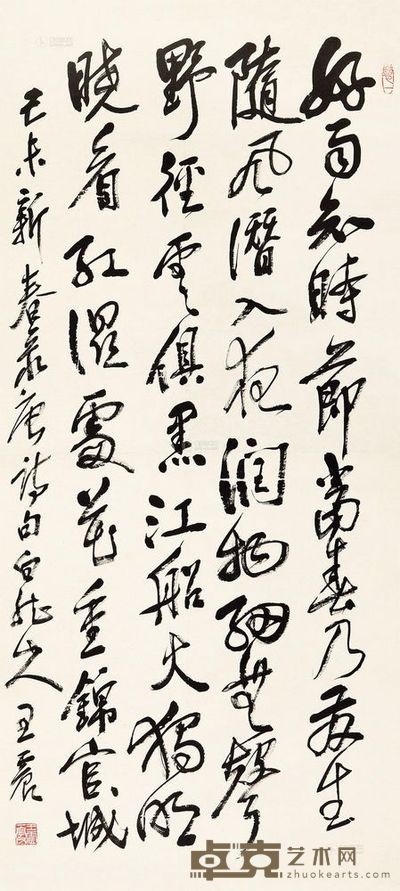 好雨知時節當春乃發生
隨風潛入夜潤物細無聲
野徑雲俱黑江船火獨明
曉看紅濕處花重錦官城
己未新春录唐詩句白龍山人王震
卓克艺术网
www.zhuokearts.com